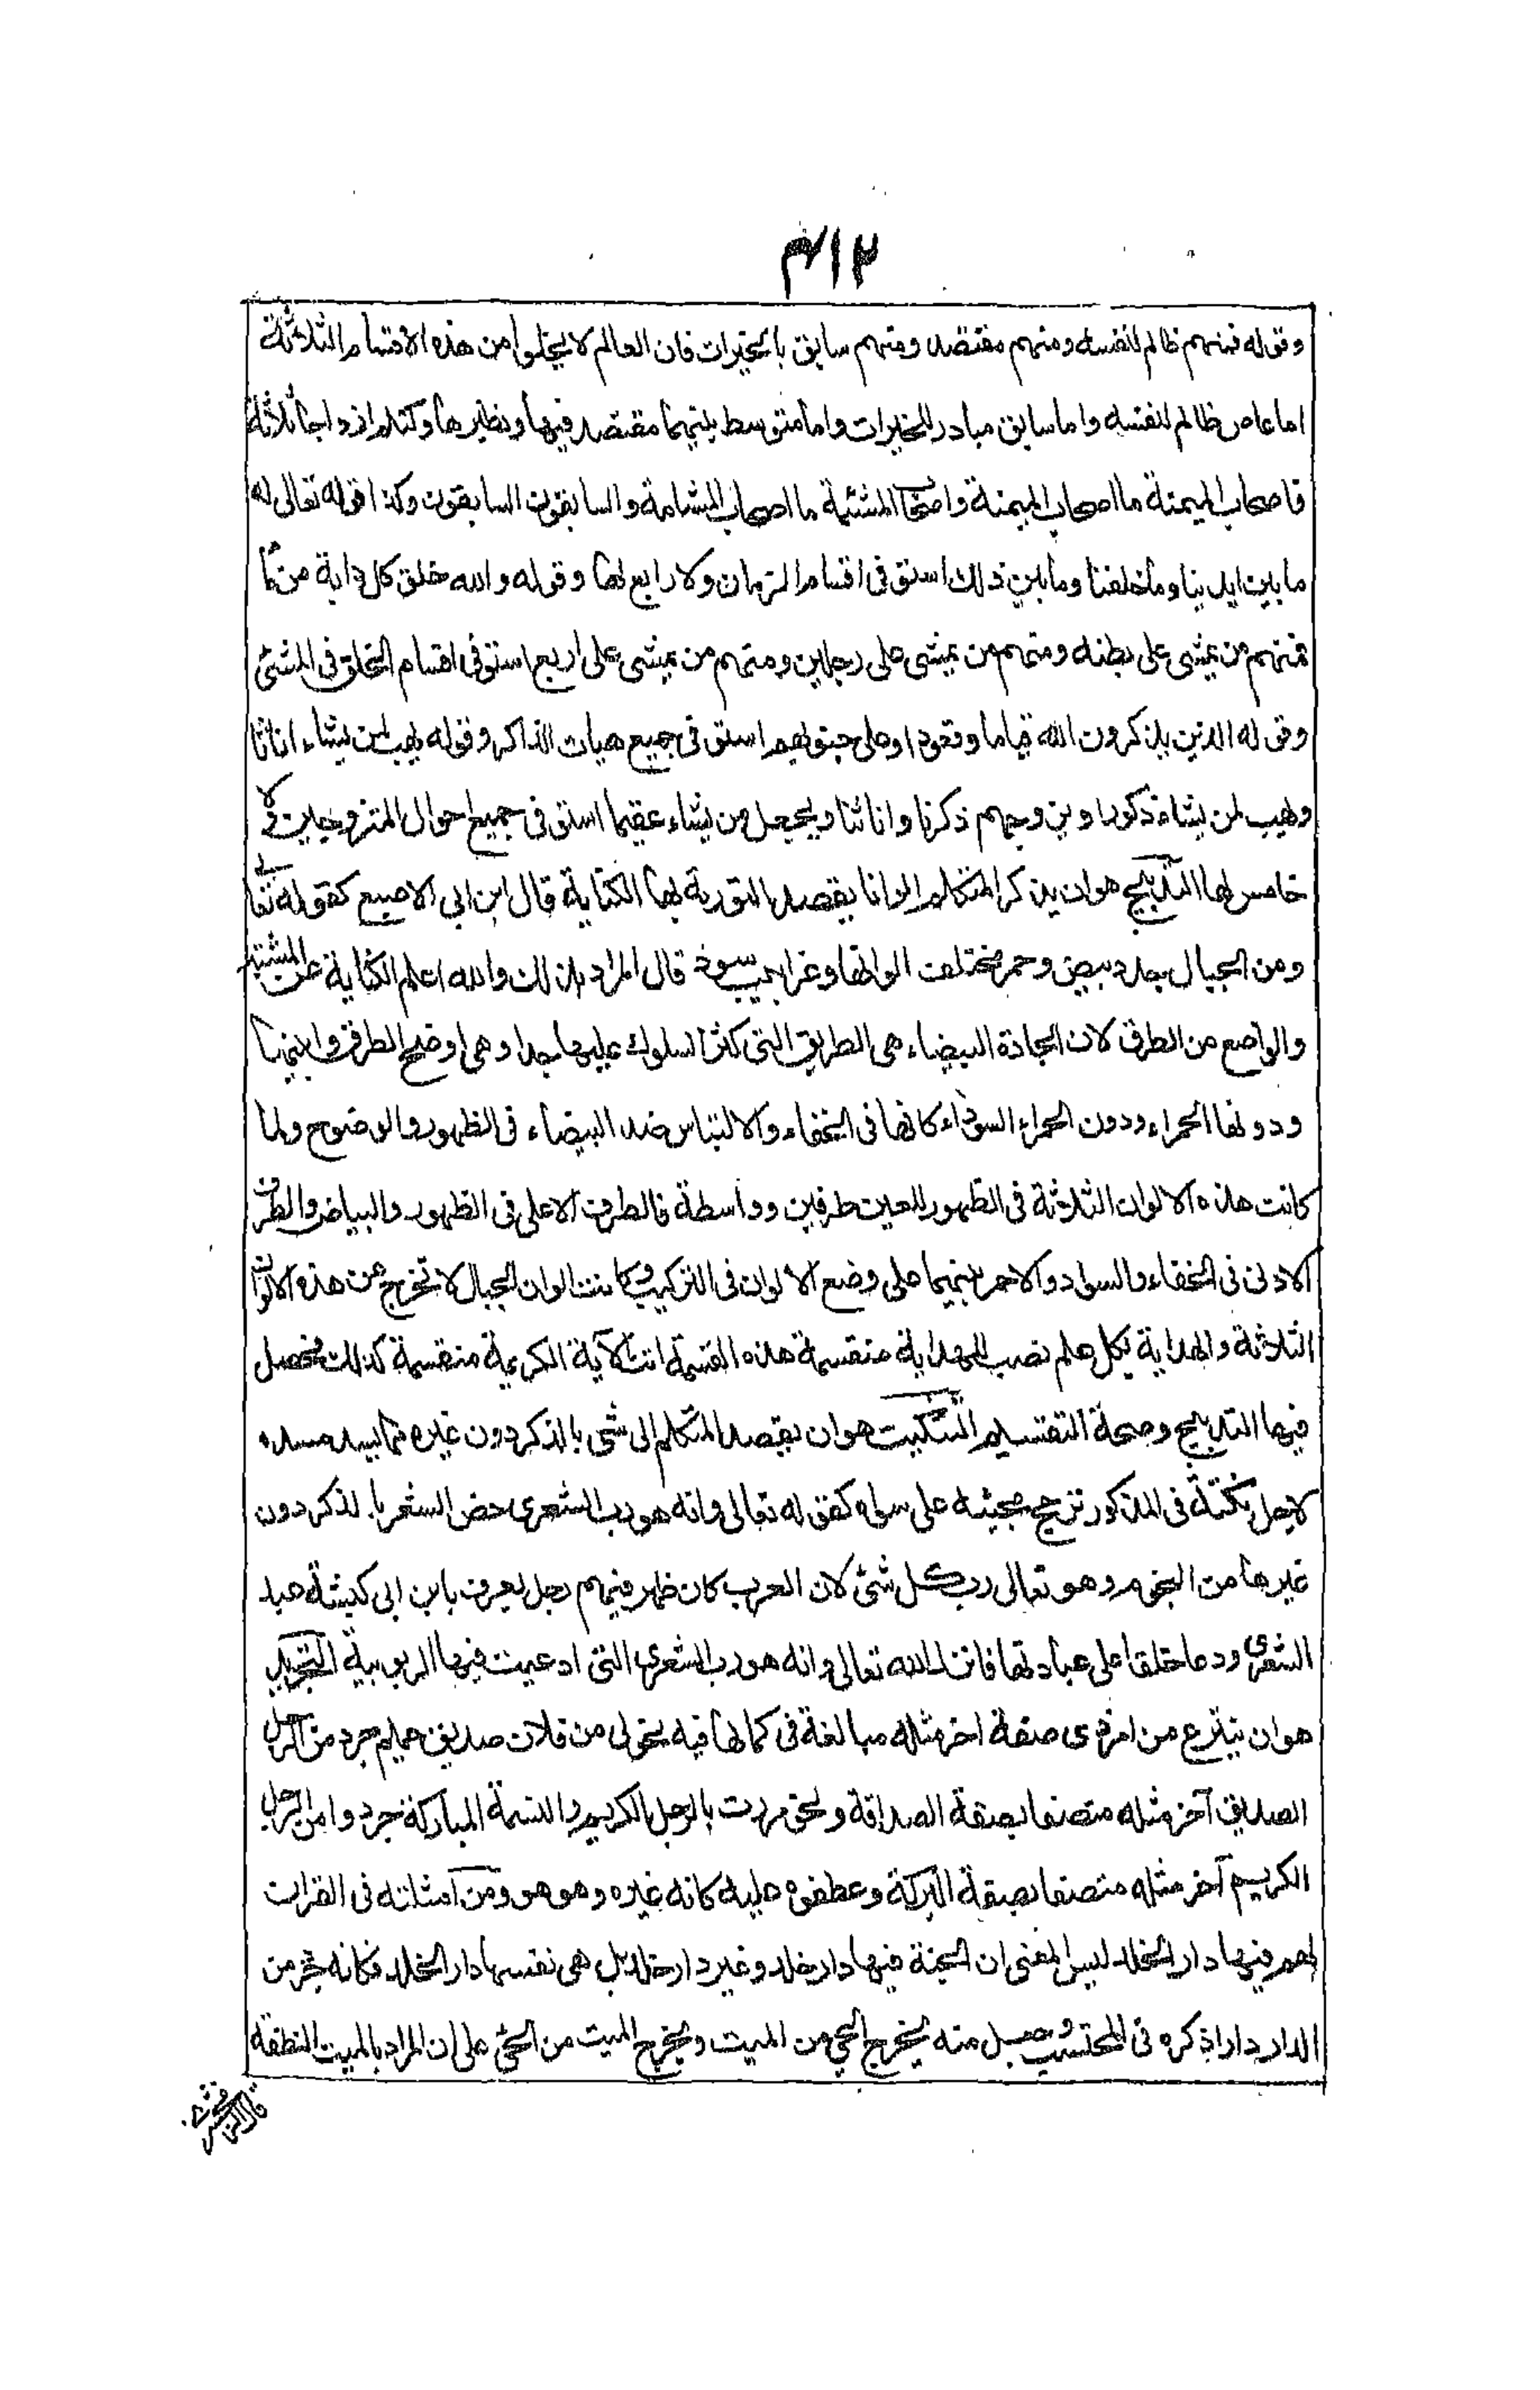 ٤١٢
وقوله فمنهم ظالم لنفسه ومنهم مقتصد ومنهم سابق بالخيرات فان العالم لا يخلوا من هذه الاقسام الثلاثة
اما عاص ظالم لنفسه واما سابق مبادر للخيرات واما متوسط بينهما مقتصد فيها ونظيرها وكنتم ازواجا ثلاثة
فاصحاب الميمنة ما اصحاب الميمنة واصحاب المشئمة ما اصحاب المشامة والسابقون السابقون وكذا قوله تعالى له
ما بين ايدينا وما خلفنا وما بين ذلك استوفى اقسام الزمان ولا رابع لها وقوله والله خلق كل دابة من ما
فمنهم من يمشى على بطنه ومنهم من يمشى على رجلين ومنهم من يمشى على اربع استوفى اقسام الخلق فى المشى
وقوله الذين يذكرون الله قياما وقعودا وعلى جنوبهم استوفى جميع هيات الذاكر وقوله يهب لمن يشاء اناثا
ويهب لمن يشاء ذكورا ويزوجهم ذكرنا واناثنا ويجعل من يشاء عقيما استوفى جميع احوال المتزوجين ولا
خامس لها التدبيج هو ان يذكر المتكلم الوانا يقصد التورية بها الكناية قال ابن ابى الاصبع كقوله تعالى
ومن الجبال جدد بيض وحمر مختلف الوانها وغرابيب سود قال المراد بذلك والله اعلم الكناية عن المشتبه
والواضح من الطرق لان الجادة البيضاء هى الطريق التى كثر السلوك عليها جدا وهى اوضح الطرق وابينها
ودونها الحمراء ودون الحمراء السوداء كانها فى الخفاء والالتباس ضد البيضاء فى الظهور والوضوح ولما
كانت هذه الالوان الثلاثة فى الظهور للعين طرفين وواسطة فالطرف الاعلى فى الظهور والبياض والطرف
الادنى فى الخفاء والسواد والاحمر بينهما على وضع الالوان فى التركيب وكانت الوان الجبال لا تخرج عن هذه الالوان
الثلاثة والهداية بكل علم نصب للهداية منقسمة هذه القسمة اتت الآية الكريمة منقسمة كذلك فحصل
فيها التدبيج وصحة التقسيم التنكيت هو ان يقصد المتكلم الى شى بالذكر دون غيره مما يسد مسده
لاجل نكتة فى المذكور ترجح مجيئه على سواه كقوله تعالى وانه هو رب الشعرى خص الشعرى بالذكر دون
غيرها من النجوم وهو تعالى رب كل شئ لان العرب كان ظهر فيهم رجل يعرف بابن ابى كبشة عبد
الشعرى ودعا خلقا على عبادتها فانزل الله تعالى وانه هو رب الشعرى التى ادعيت فيها الربوبية التجريد
هو ان ينتزع من امر ذى صفة اخر مثله مبالغة فى كمالها فيه نحو لى من فلان صديق حميم جرد من الرجل
الصديق آخر مثله متصفا بصفة الصداقة ونحو مررت بالرجل الكريم والنسمة المباركة جردوا من الرجل
الكريم آخر مثله متصفا بصفة البركة وعطفوه عليه كانه غيره وهو هو ومن امثلته فى القران
لهم فيها دار الخلد ليس المعنى ان الجنة فيها دار خلد وغير دار خلد بل هى نفسها دار الخلد فكانه جرد من
الدار دارا ذكره فى المحتسب وجعل منه يخرج الحى من الميت ويخرج الميت من الحى على ان المراد بالميت النطفة
قال الزمخشرى